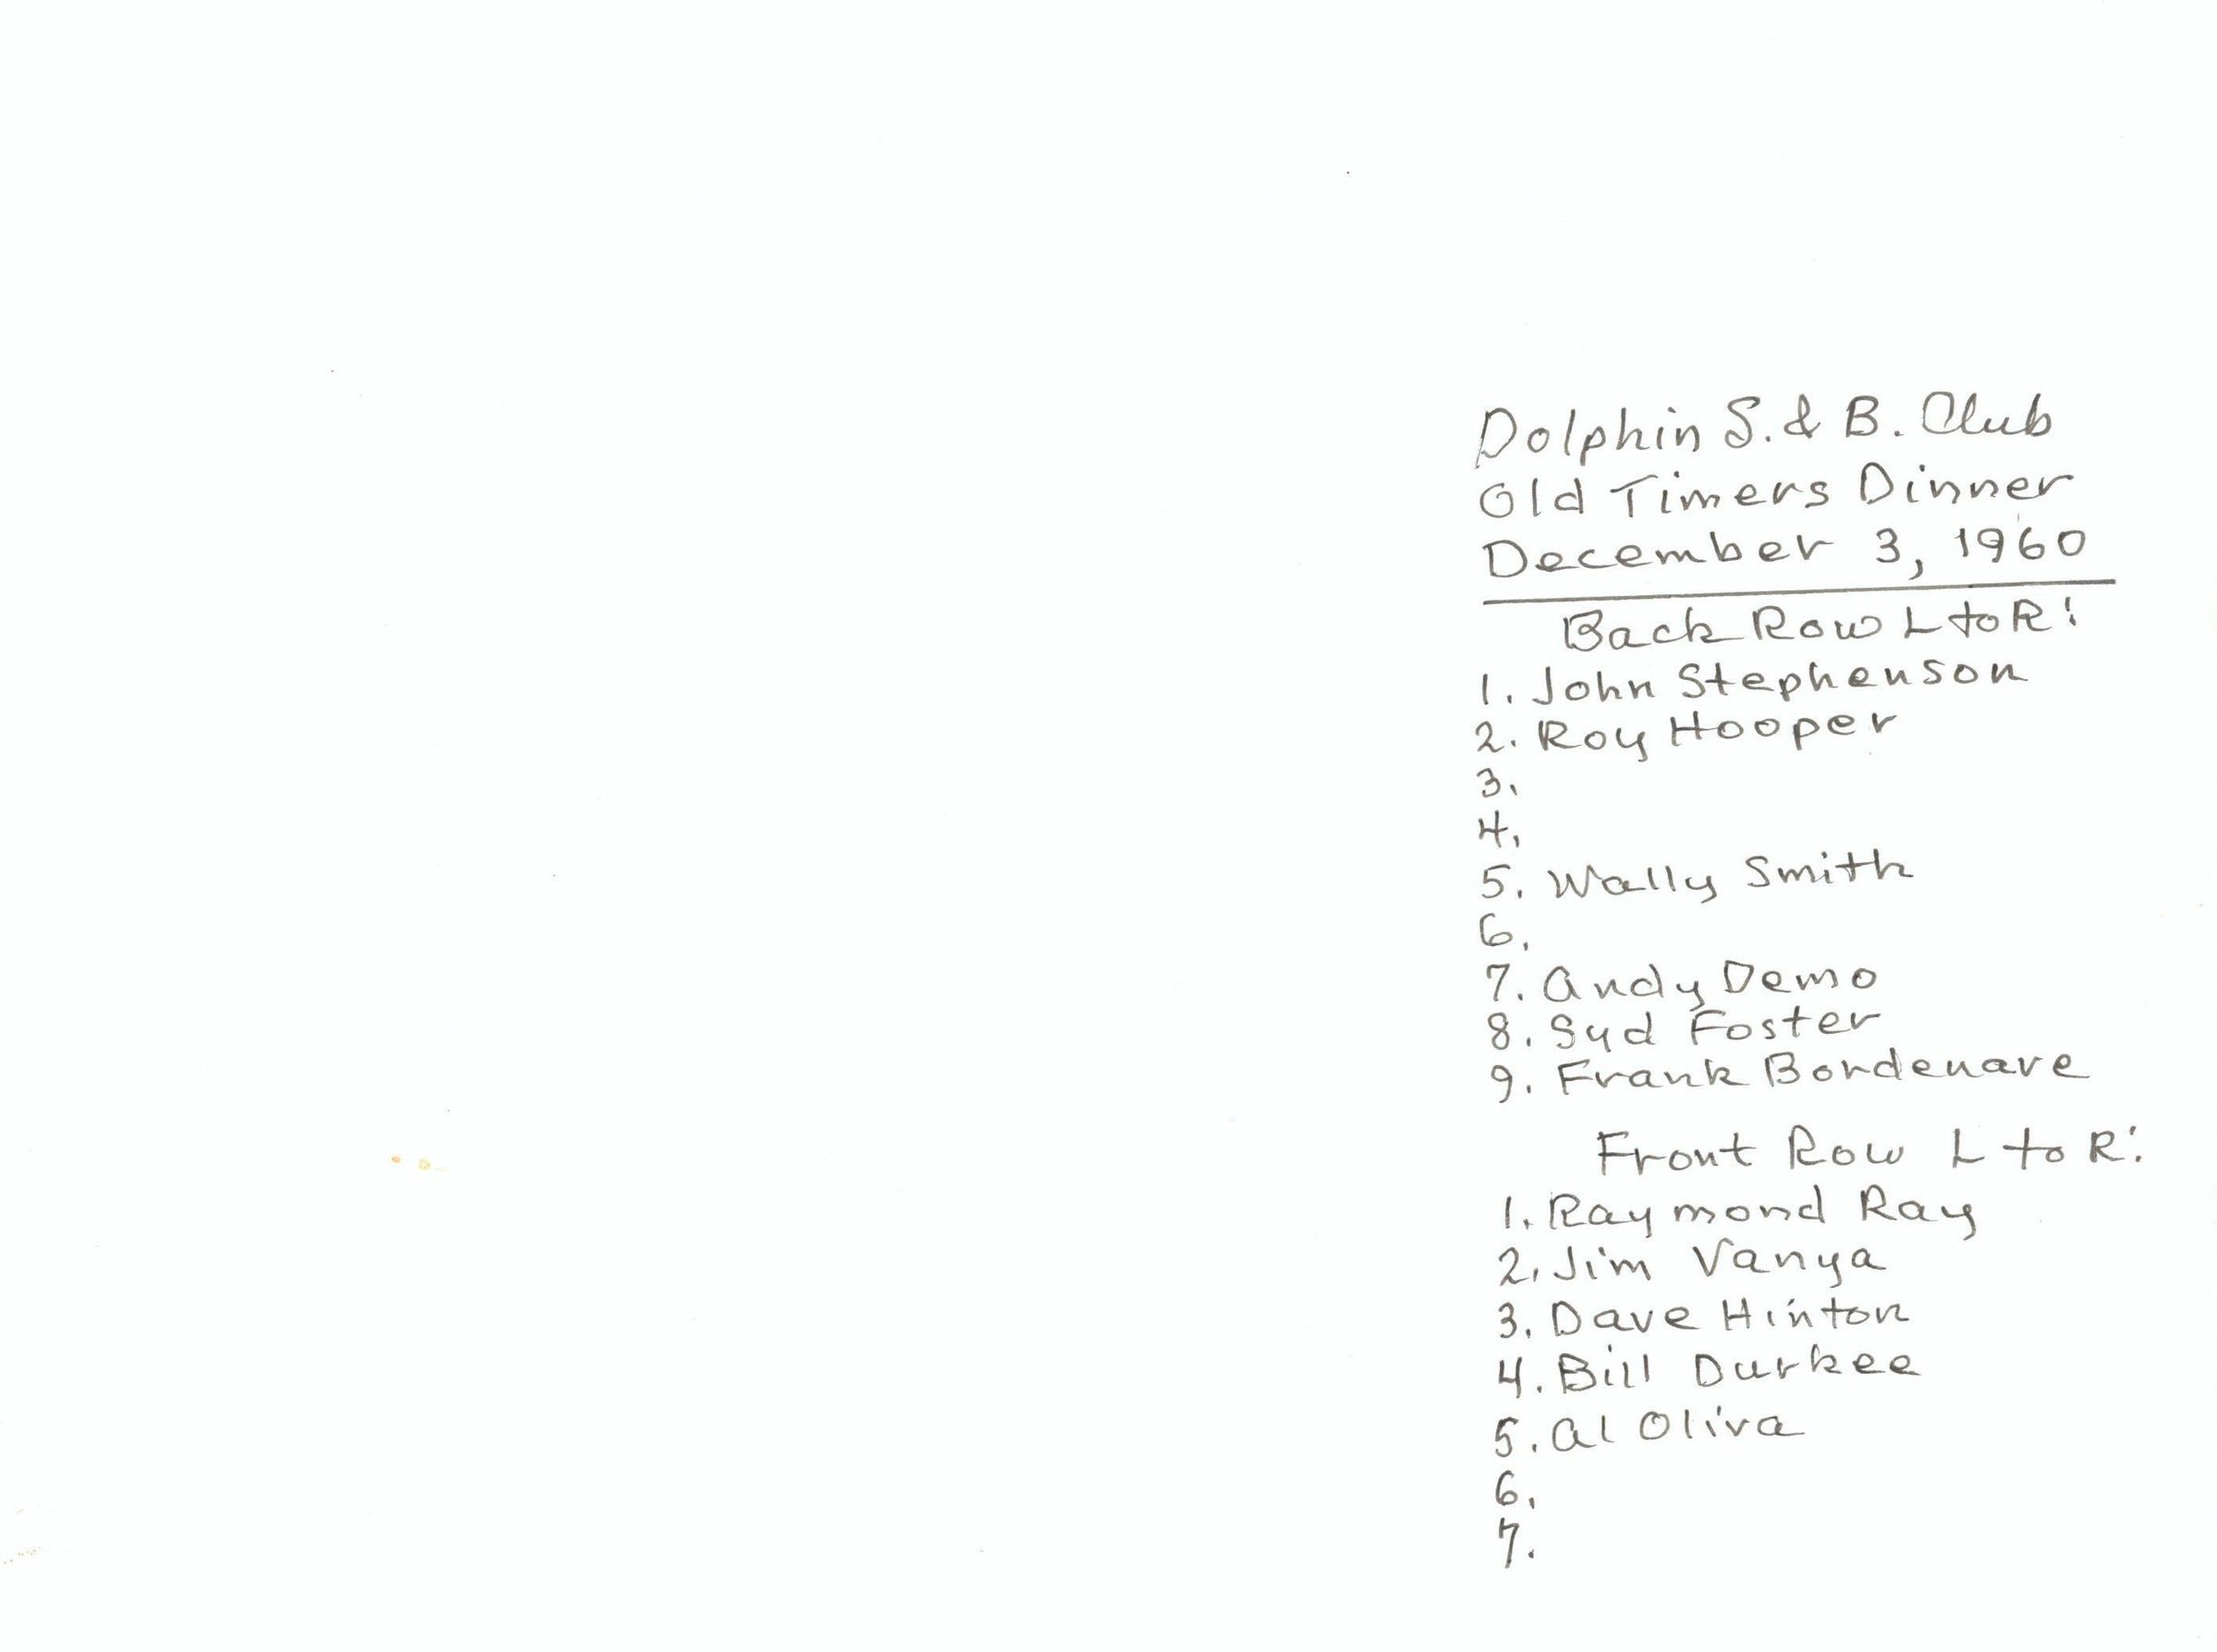 Dolphin S. & B. Club
Old Timers Dinner
December 3, 1960
Back Row L to R:
1. John Stephenson
2. Roy Hooper
3.
4.
5. Wally Smith
6.
7. Andy Demo
8. Syd Foster
9. Frank Bordenave
Front Row L to R:
1. Raymond Ray
2. Jim Vanya
3. Dave Hinton
4. Bill Durkee
5. Al Oliva
6.
7.